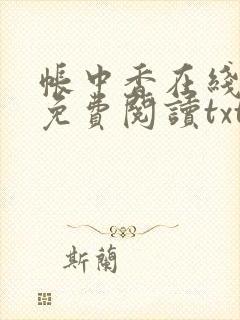 帳中香在綫
免費閱讀txt
斯蘭